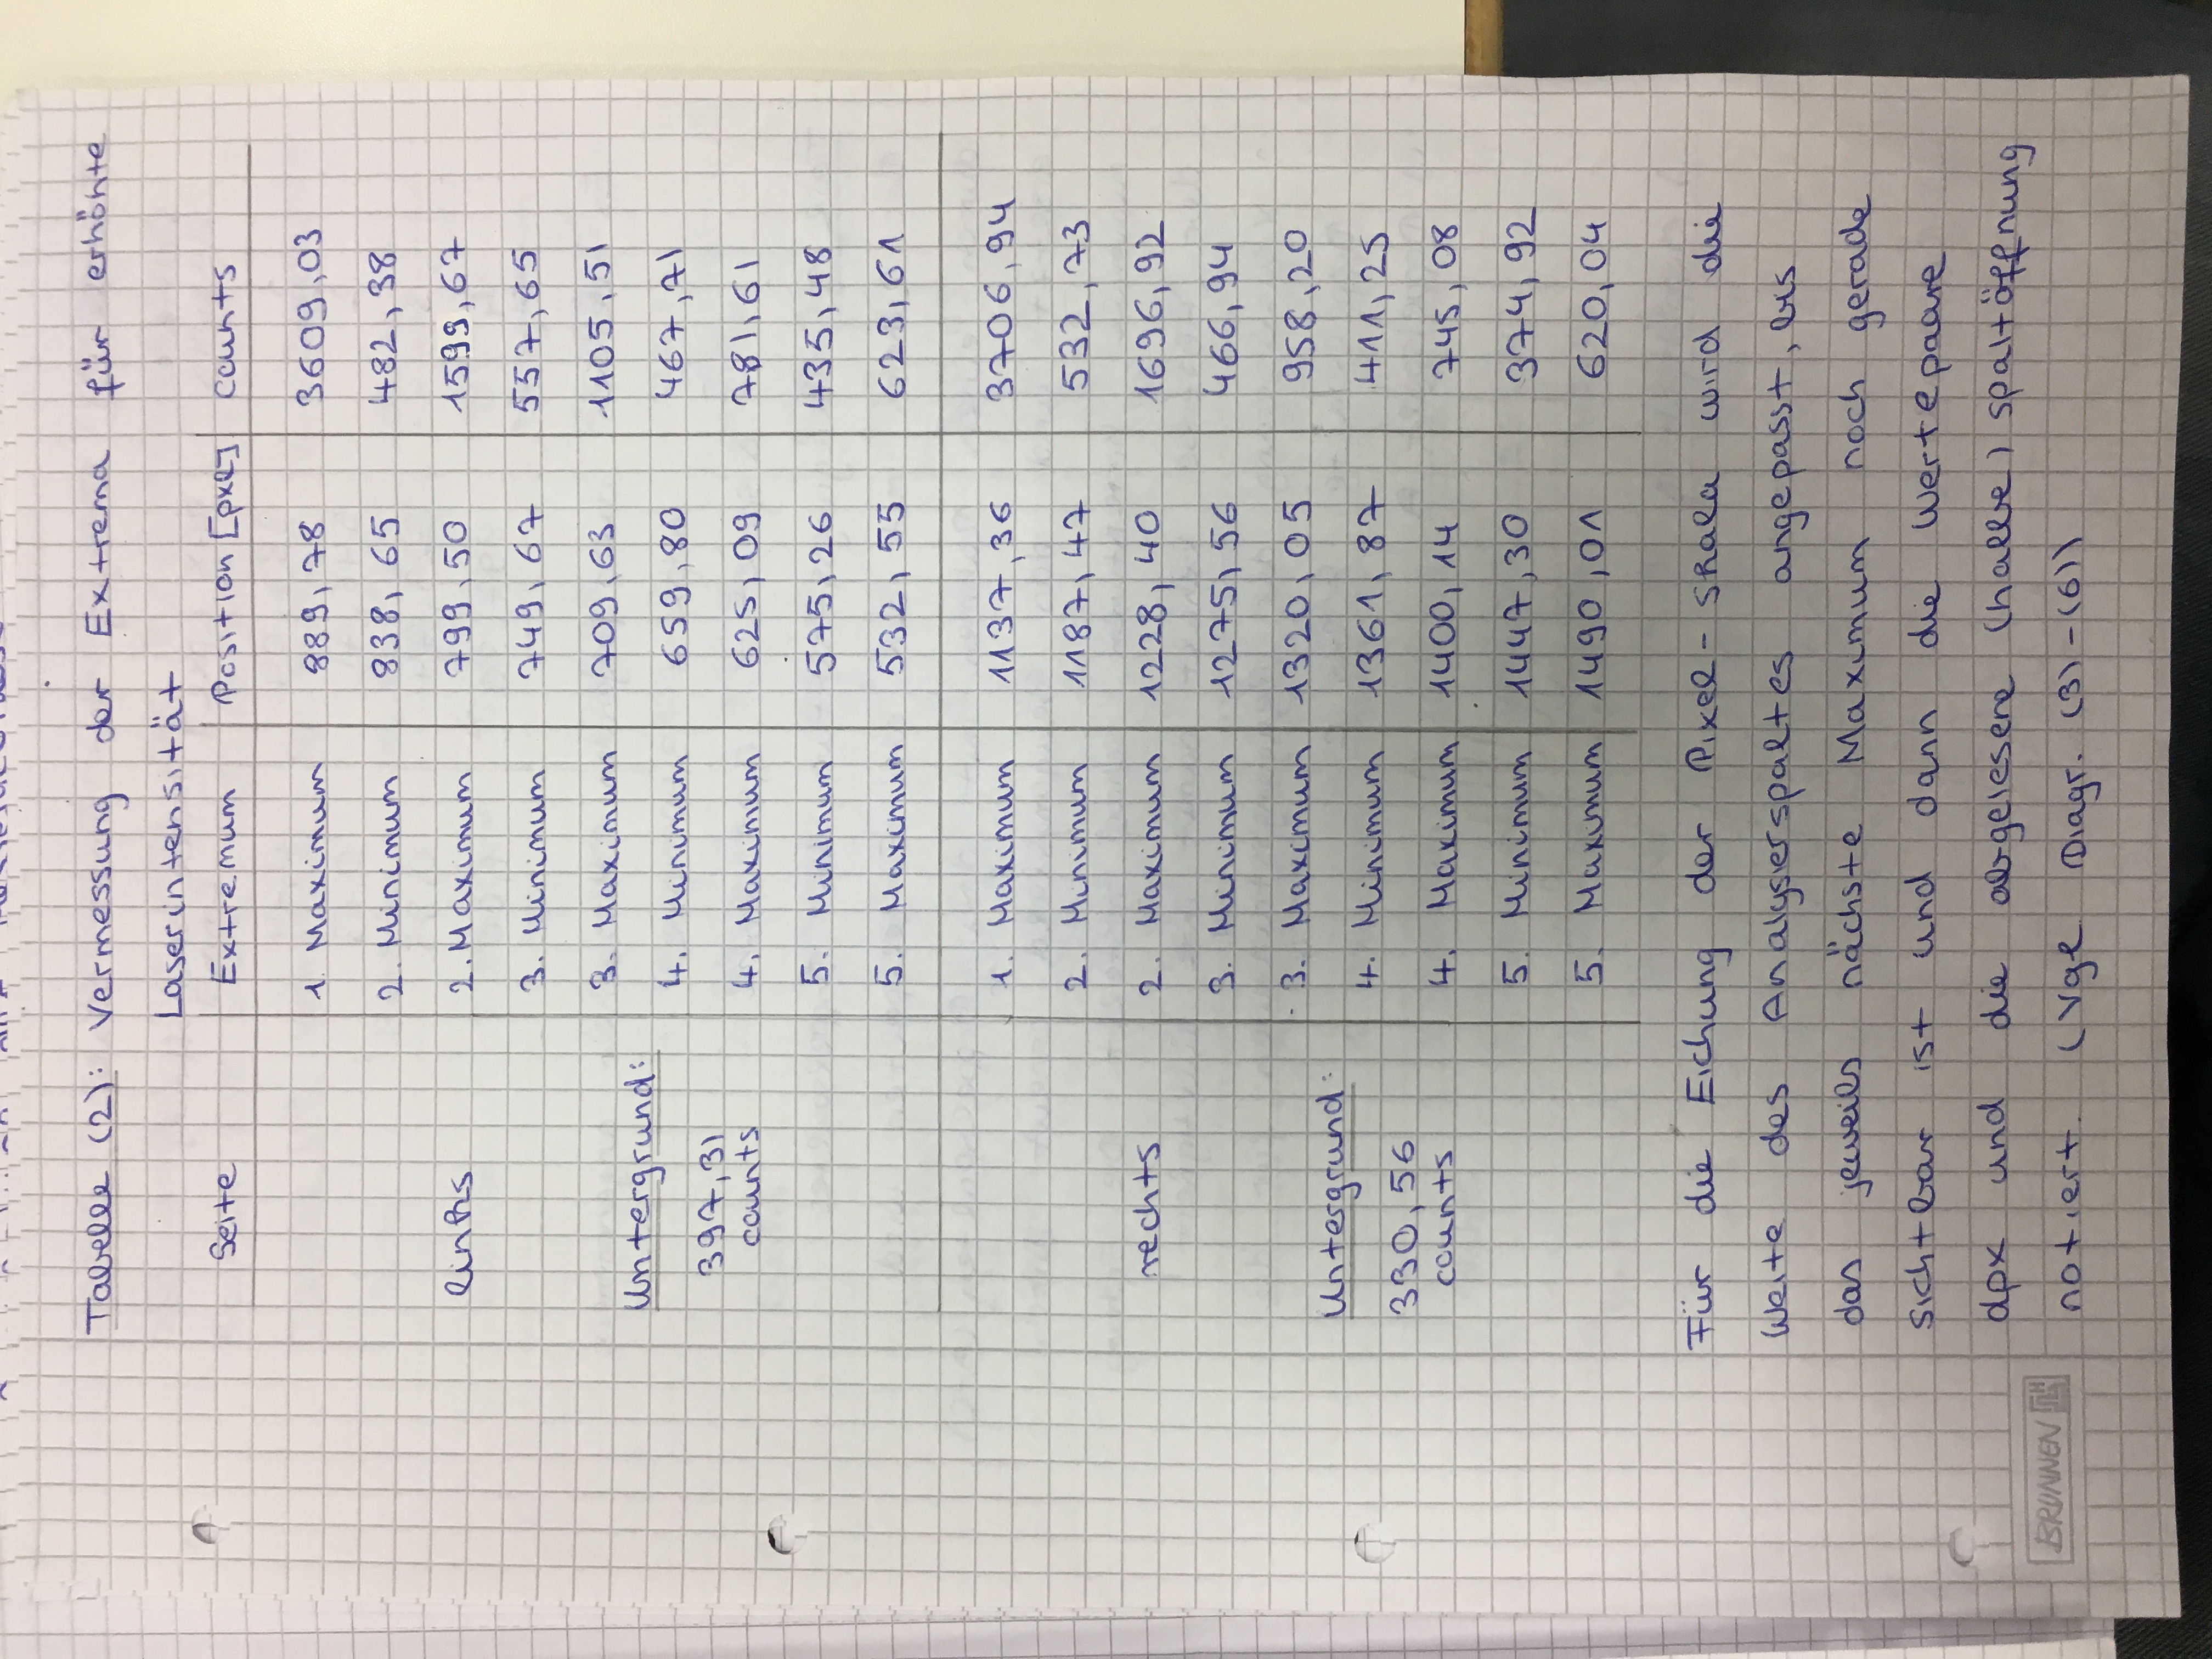 Tabelle (2): Vermessung der Extrema für erhöhte
Laserintensität
Seite Extremum Position [pxl] counts
1. Maximum 889,78 3609,03
2. Minimum 838,65 482,38
links 2. Maximum 799,50 1599,67
3. Minimum 749,67 557,65
3. Maximum 709,63 1105,51
Untergrund:
4. Minimum 659,80 467,71
397,31
counts 4. Maximum 625,09 781,61
5. Minimum 575,26 435,48
5. Maximum 532,55 623,61
1. Maximum 1137,36 3706,94
2. Minimum 1187,47 532,73
rechts 2. Maximum 1228,40 1696,92
3. Minimum 1275,56 466,94
3. Maximum 1320,05 958,20
Untergrund:
4. Minimum 1361,87 411,25
330,56
counts 4. Maximum 1400,14 745,08
5. Minimum 1447,30 374,92
5. Maximum 1490,01 620,04
Für die Eichung der Pixel-Skala wird die
Weite des Analysierspaltes angepasst, bis
das jeweils nächste Maximum noch gerade
sichtbar ist und dann die Wertepaare
dpx und die abgelesene (halbe) Spaltöffnung
notiert. (Vgl Diagr. (3)-(6))
BRUNNEN